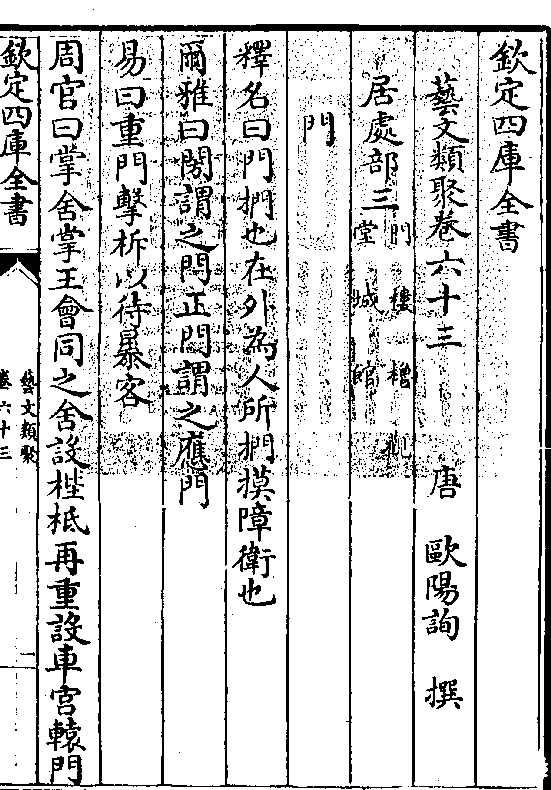 欽定四庫全書
藝文類聚卷六十三　唐　歐陽詢　撰
居處部三　門　樓　櫓　觀　堂　城　館
門
釋名曰門捫也在外為人所捫摸障衛也
爾雅曰閍謂之門正門謂之應門
易曰重門擊柝以待暴客
周官曰掌舍掌王會同之舍設梐枑再重設車宮轅門
欽定四庫全書
藝文類聚
卷六十三
一